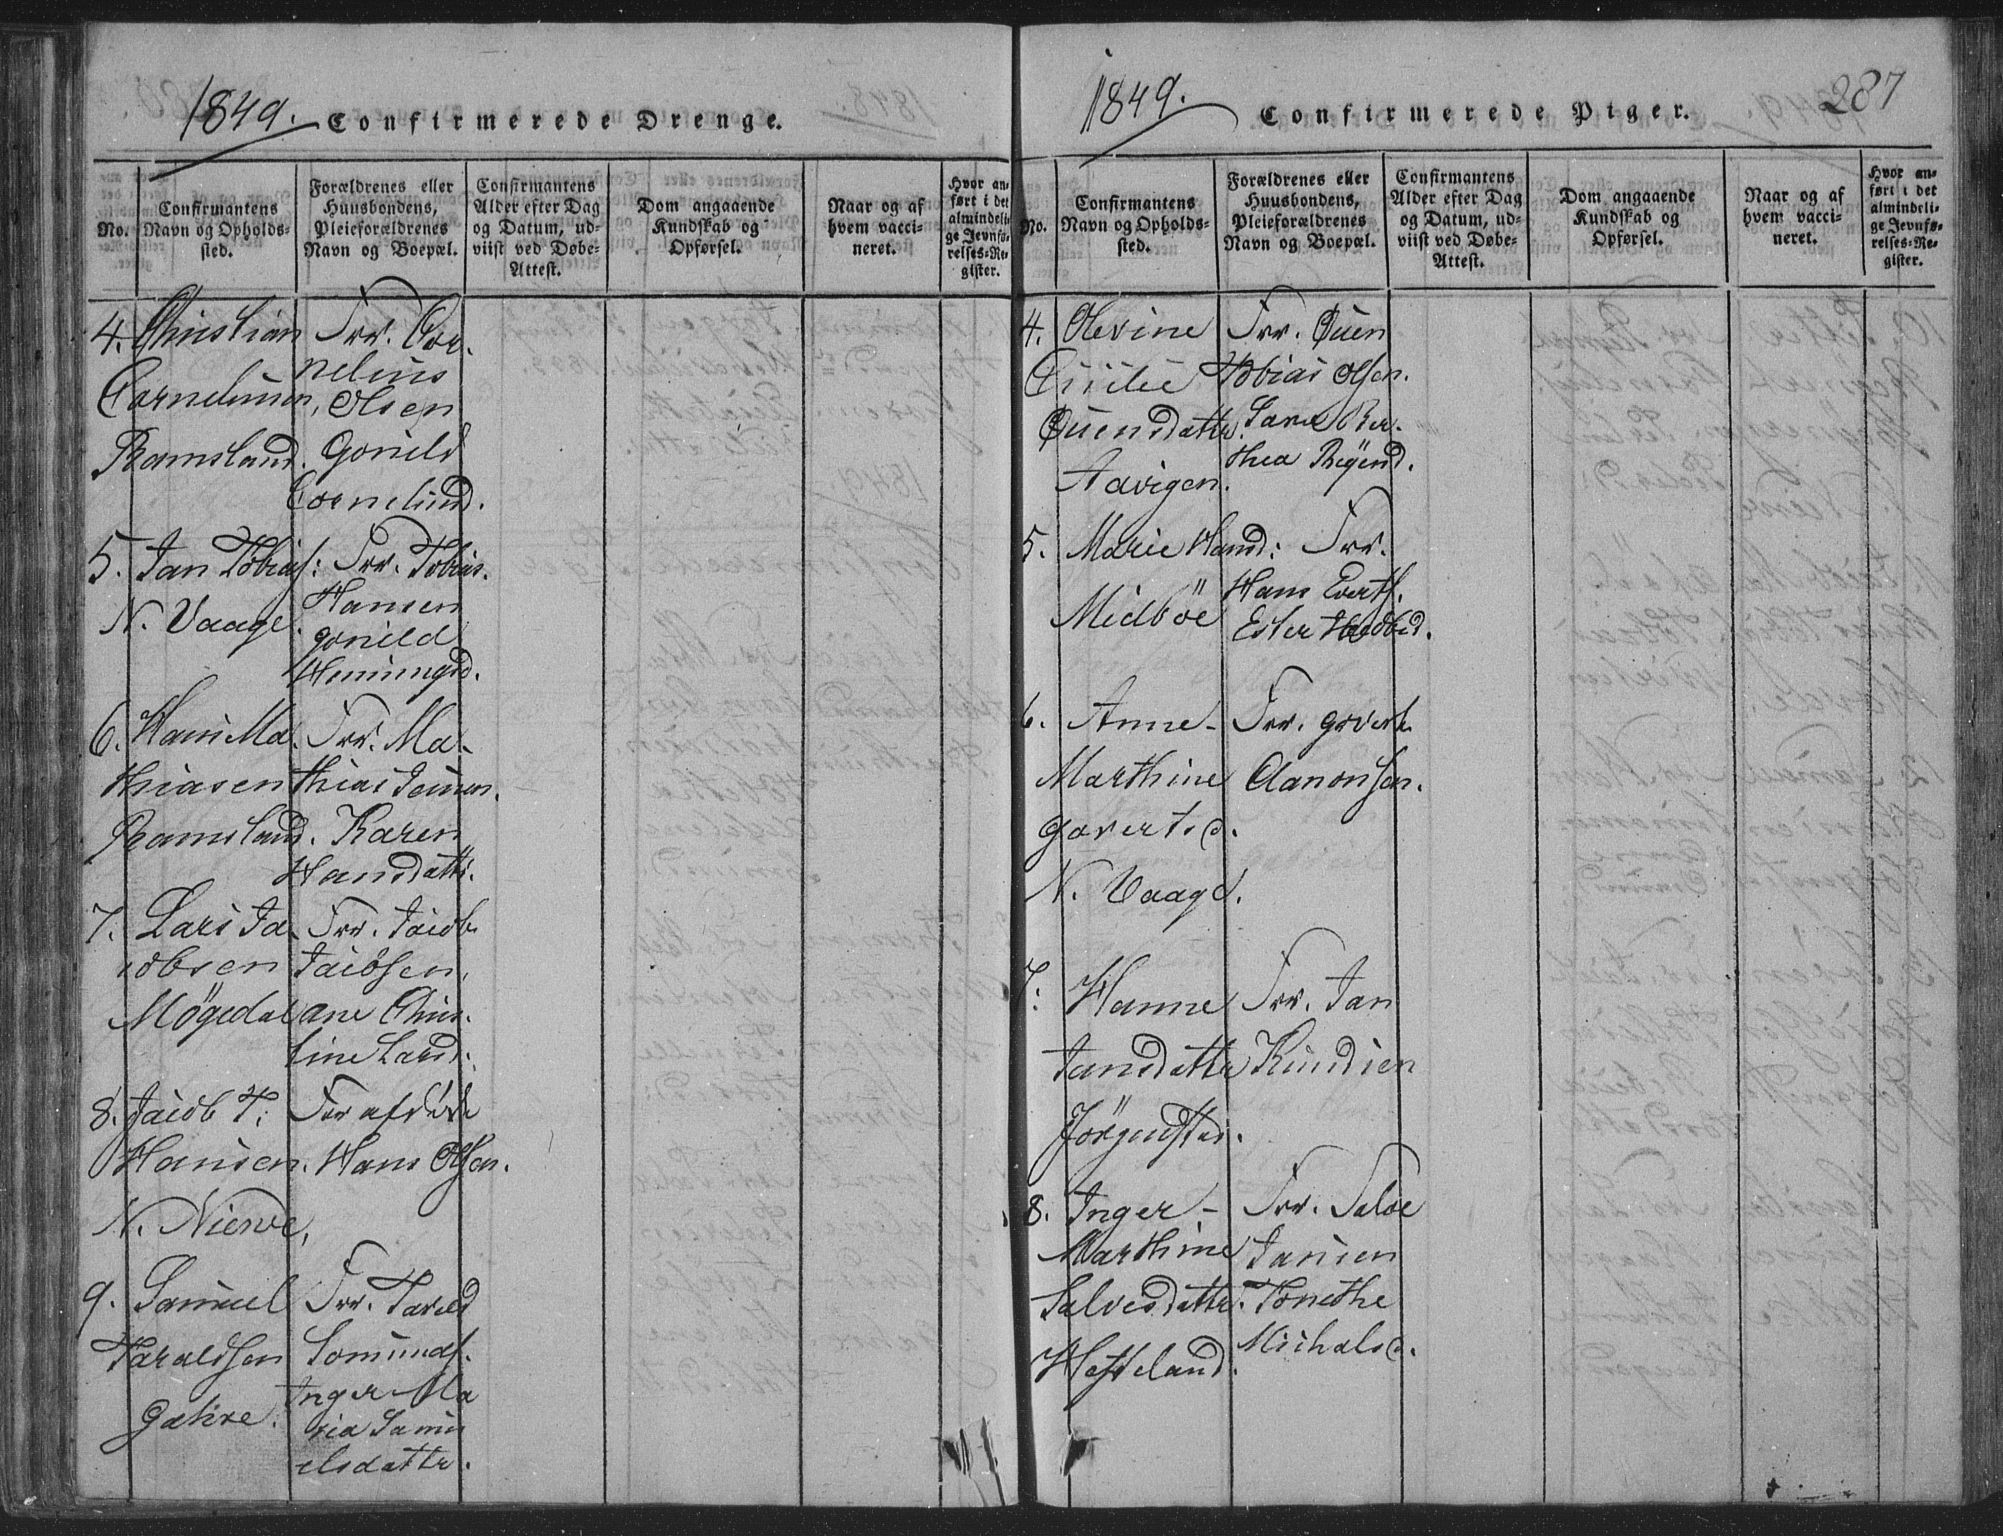 1849. Confirmerede Drenge.
No.
Confirmantens
Navn og Opholds-
sted.
Forældrenes eller
Huusbondens,
Pleieforældrenes
Navn og Boepæl.
Confirmantens
Alder efter Dag
og Datum, ud-
viist ved Døbe-
Attest.
Dom angaaende
Kundskab og
Opførsel.
Naar og af
hvem vacci-
neret.
Hvor an-
ført i det
almindeli-
ge Jevnfø-
relses-Re-
gister.
4. Christian
Cornelius
Ramsland.
Frr. Cor-
nelius
Olsen
Gonild
Cornelius d.
5. Jan Tobias:
N. Vaage.
Frr. Tobias
Hansen
Gonild
Henningsd.
6. Hans Ma-
thiasen
Ramsland.
Frr. Ma-
thias Jensen.
Karen
Hansdattr.
7. Lars Ja-
cobsen
Mögedal
Frr. Jacob
Jacobsen,
ane Chris-
tine Larsd:
8. Jacob T:
Hansen.
N. Nierve,
Frr afdöde
Hans Olsen.
9. Samuel
Taraldsen
Gakve.
Frr. Tarald
Somunds.
Inger Ma
ria Samu
elsdattr.
1849. Confirmerede Piger. 287
No.
Confirmantens
Navn og Opholds-
sted.
Forældrenes eller
Huusbondens,
Pleieforældrenes
Navn og Boepæl.
Confirmantens
Alder efter Dag
og Datum, ud-
viist ved Døbe-
Attest.
Dom angaaende
Kundskab og
Opførsel.
Naar og af
hvem vacci-
neret.
Hvor an-
ført i det
almindeli-
ge Jevnfø-
relses-Re-
gister.
4. Olevine
Cecilie
Quensdattr.
Aavigen.
Frr. Quen
Tobias Olsen.
Sara Ber-
thea Rejerd.
5. Marie Hansd:
Midböe
Frr.
Hans Everts.
Ester
6. Anne-
Marthine
Govertsd.
N. Vaage.
Frr. Govert
Aanonsen.
7: Hanne
Jansdattr
Jörgensted.
Frr. Jan
Knudsen
8. Inger-
Marthine
Salvesdattr.
Hesteland.
Frr. Salve
Jansen
Tonethe
Michalsd.